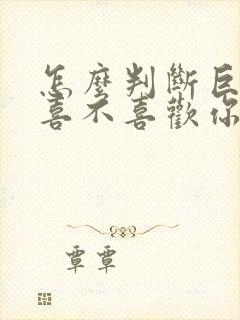 怎麼判斷巨
喜不喜歡你
覃覃